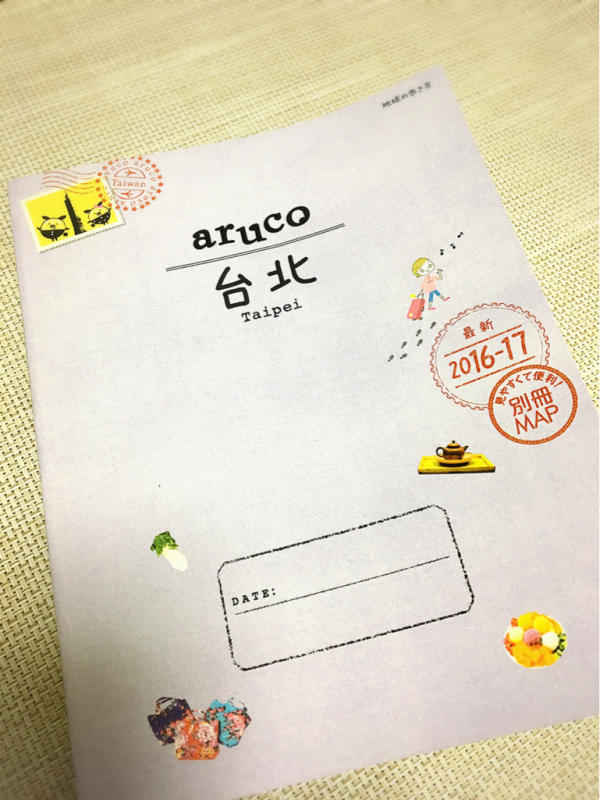 地球の歩き方
aruco aruco aruco
Taiwan
aruco
台北
Taipei
最新
2016-17
見やすくて便利!
別冊
MAP
DATE: